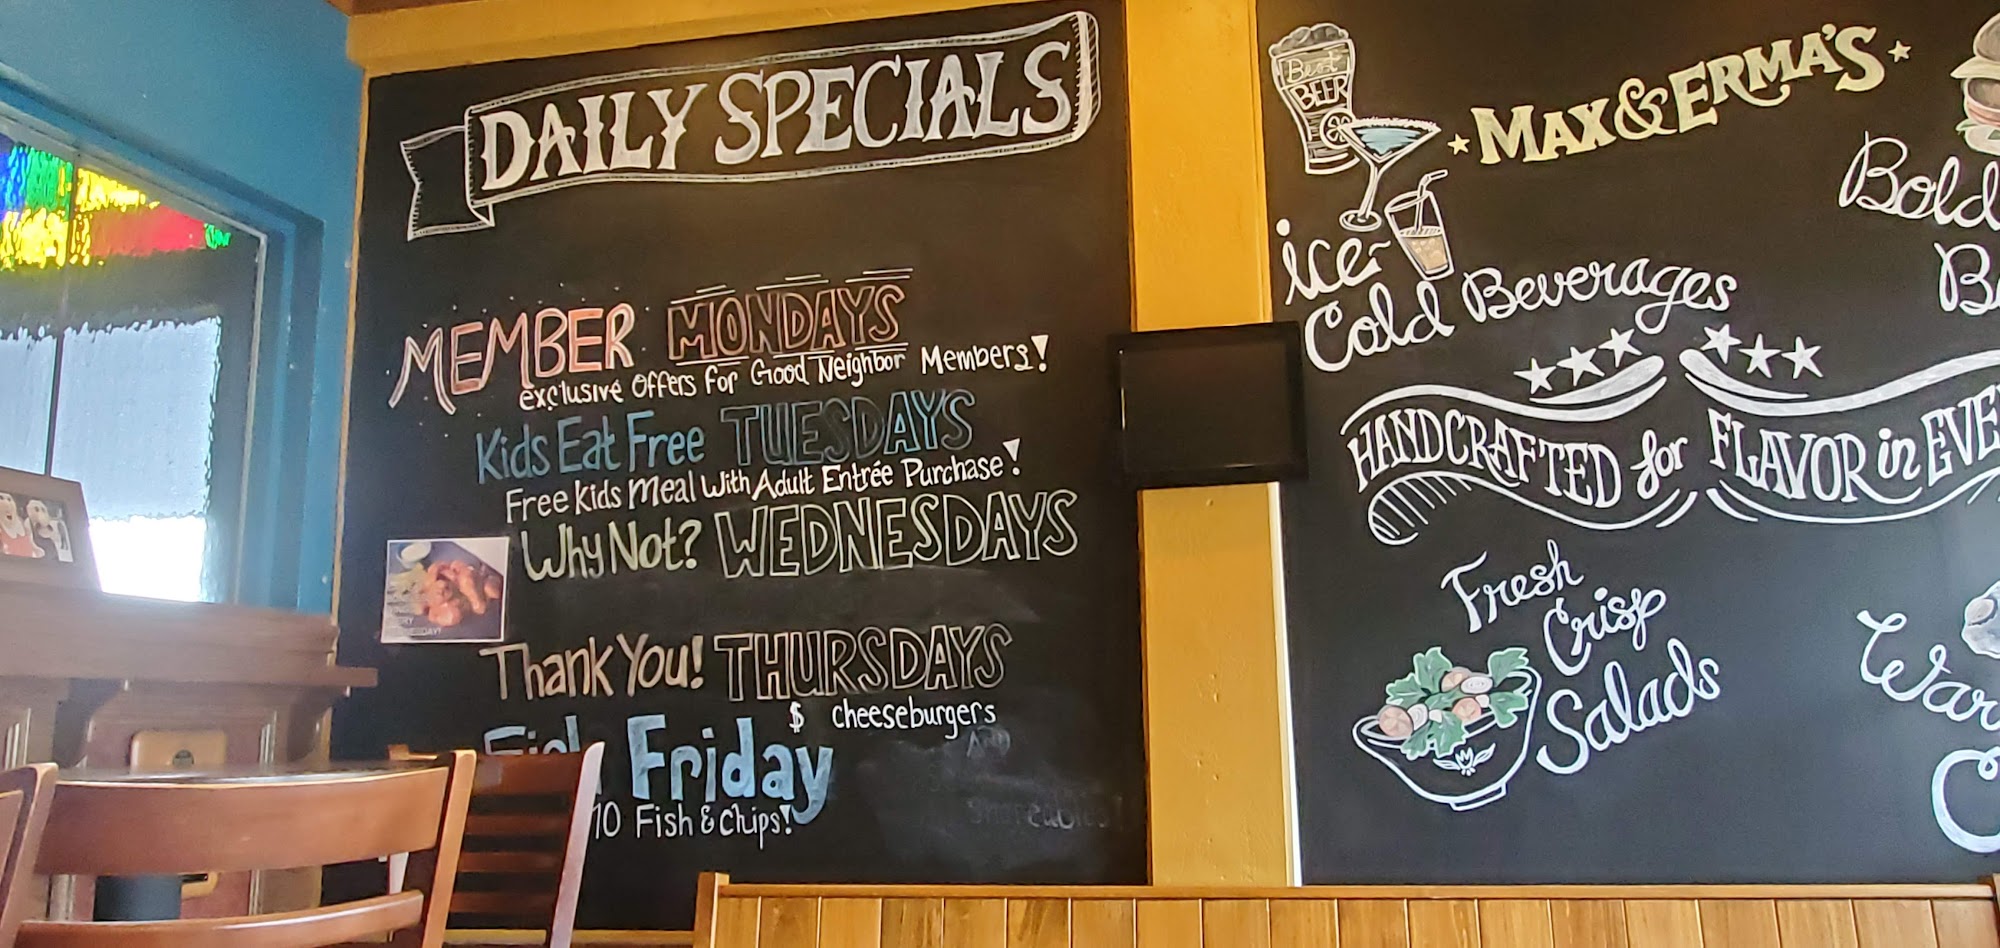 DAILY SPECIALS
MEMBER MONDAYS
exclusive offers for Good Neighbor Members!
Kids Eat Free TUESDAYS
Free Kids Meal With Adult Entrée Purchase!
Why Not? WEDNESDAYS
Thank You! THURSDAYS
$ cheeseburgers
Friday
10 Fish & Chips!
Best
BEER
MAX & ERMA'S
ice-
Cold Beverages
Bold
HANDCRAFTED for FLAVOR in
Fresh
Crisp
Salads